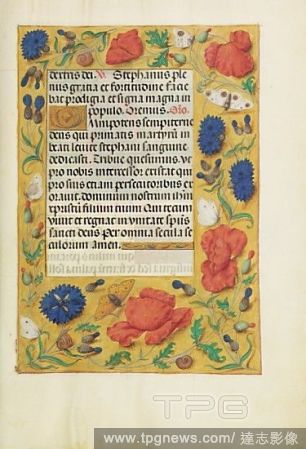 dextris dei. V. Stephanus ple
nus gratia et fortitudine facie
bat prodigia et signa magna in
populo. Oremus. Oro.
Omnipotens sempiterne
deus qui primitias martyrum in
beati leuite stephani sanguine
dedicasti. Tribue quesumus. vt
pro nobis intercessor existat qui
pro suis etiam persecutoribus ex
orauit. dominum nostrum ihm
xpm filium tuum Qui tecum
viuit et regnat in vnitate spūs
sancti deus Per omnia secula se
culorum amen.
TPG
www.tpgnews.com/ 達志影像